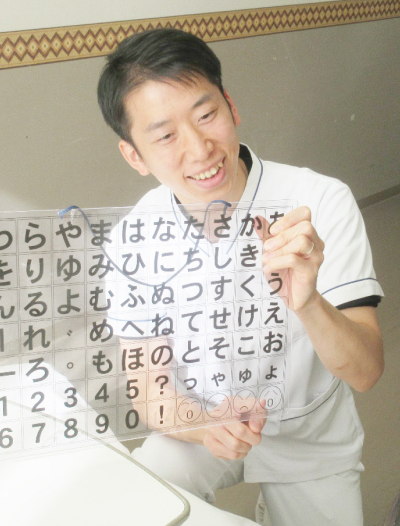 わ ら や ま は な た さ か あ
を り ゆ み ひ に ち し き
ん る よ む ふ ぬ つ す く う
れ ゛ め へ ね て せ け え
ー ろ ゜ も ほ の と そ こ お
1 2 3 4 5 ? っ ゃ ゅ ょ
6 7 8 9 0 !